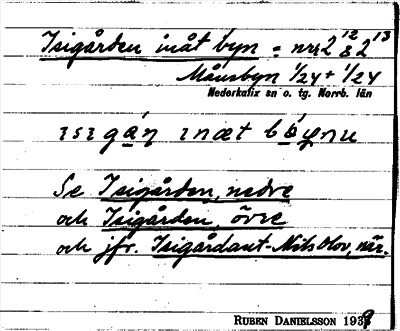 Isigården inåt byn = nr 2¹² & 2¹³
Månsbyn 1/24 + 1/24
Nederkalix sn o. tg. Norrb. län
ısıgá̱ŋ ınæt bó̱ynu
Se Isigården, nedre
och Isigården, övre
och jfr. Isigårdant-Nils Olov, när.
RUBEN DANIELSSON 1938